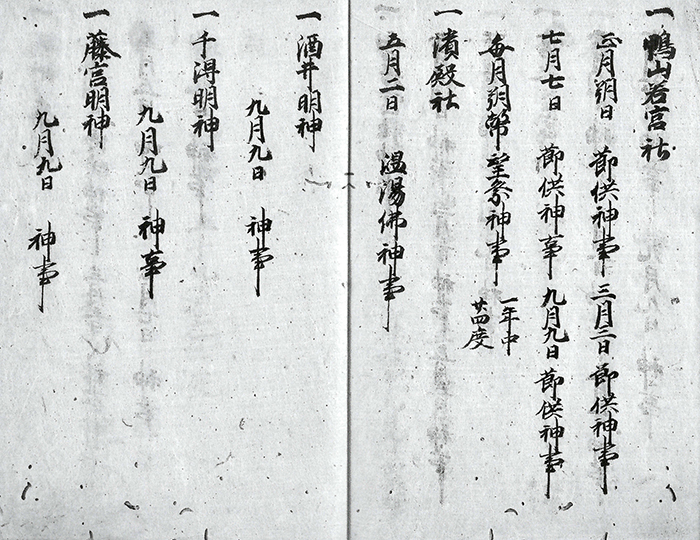 一鴨山若宮社
正月朔日　節供神事　三月三日節供神事
七月七日　節供神事　九月九日節供神事
毎月朔幣望祭神事　一年中
廿四度
一濱殿社
五月二日　温湯佛神事
一酒井明神
九月九日　神事
一千得明神
九月九日　神事
一藤宮明神
九月九日　神事